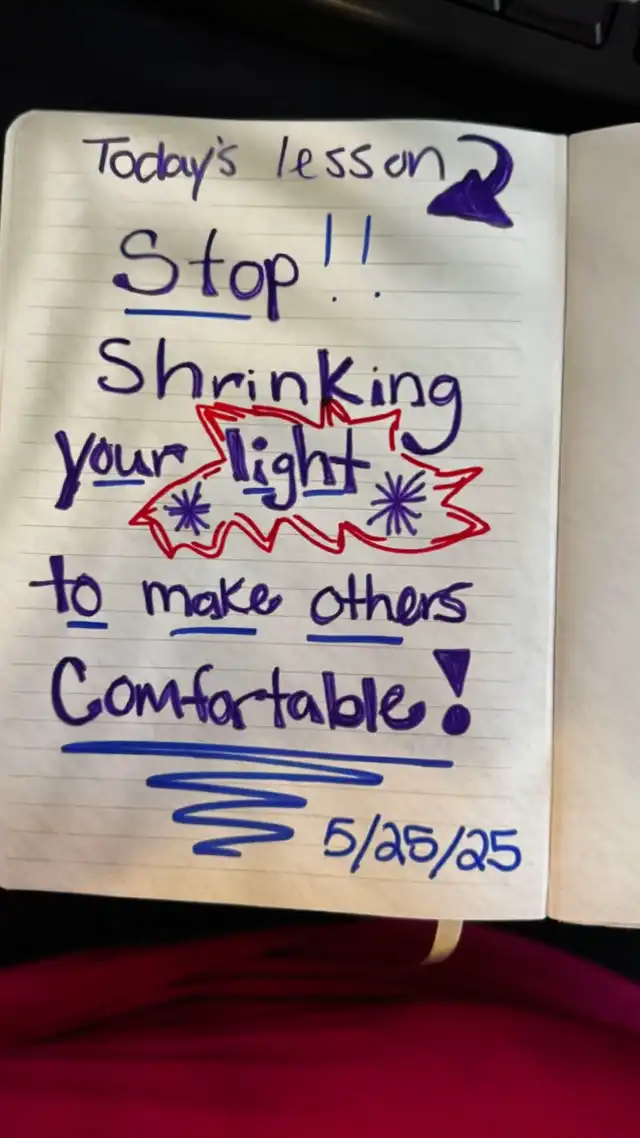 Today's lesson
Stop!!
Shrinking
your light
to make others
Comfortable!
5/25/25